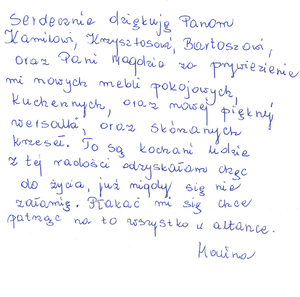 Serdecznie dziękuję Panom
Kamilowi, Krzysztosowi, Bartoszowi,
oraz Pani Magdzie za przywiezienie
mi nowych mebli pokojowych,
kuchennych, oraz nowej pięknej
wersalki, oraz skórzanych
krzeseł. To są kochani ludzie
z tej radości odzyskałam chęć
do życia, już nigdy się nie
załamię. Płakać mi się chce
patrząc na to wszystko w altance.
Halina